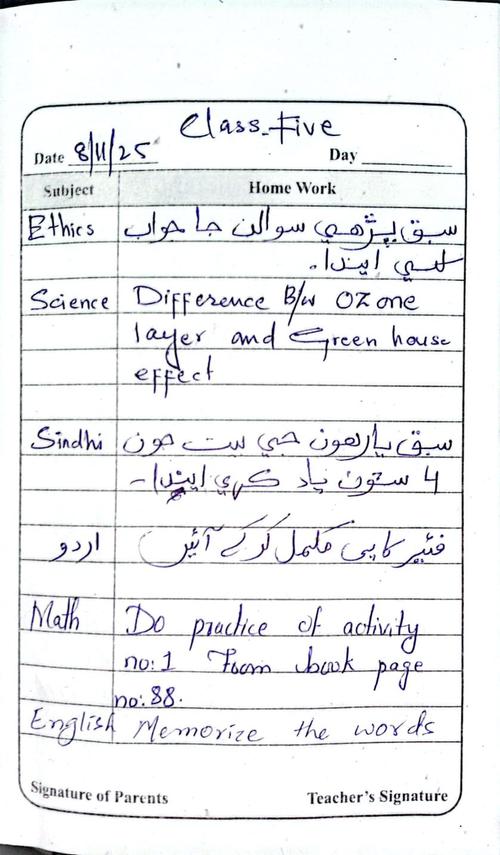 Class-Five
Date 8/11/25 Day
Subject Home Work
Ethics سبق پڙهي سوالن جا جواب
لکي ايندا.
Science Difference B/w OZone
layer and Green house
effect
Sindhi سبق يارهون جي بيت جون
4 سٽون ياد ڪري ايندا۔
اردو فئیر کاپی مکمل کر کے آئیں
Math Do practice of activity
no:1 From book page
no:88.
English Memorize the words
Signature of Parents Teacher's Signature